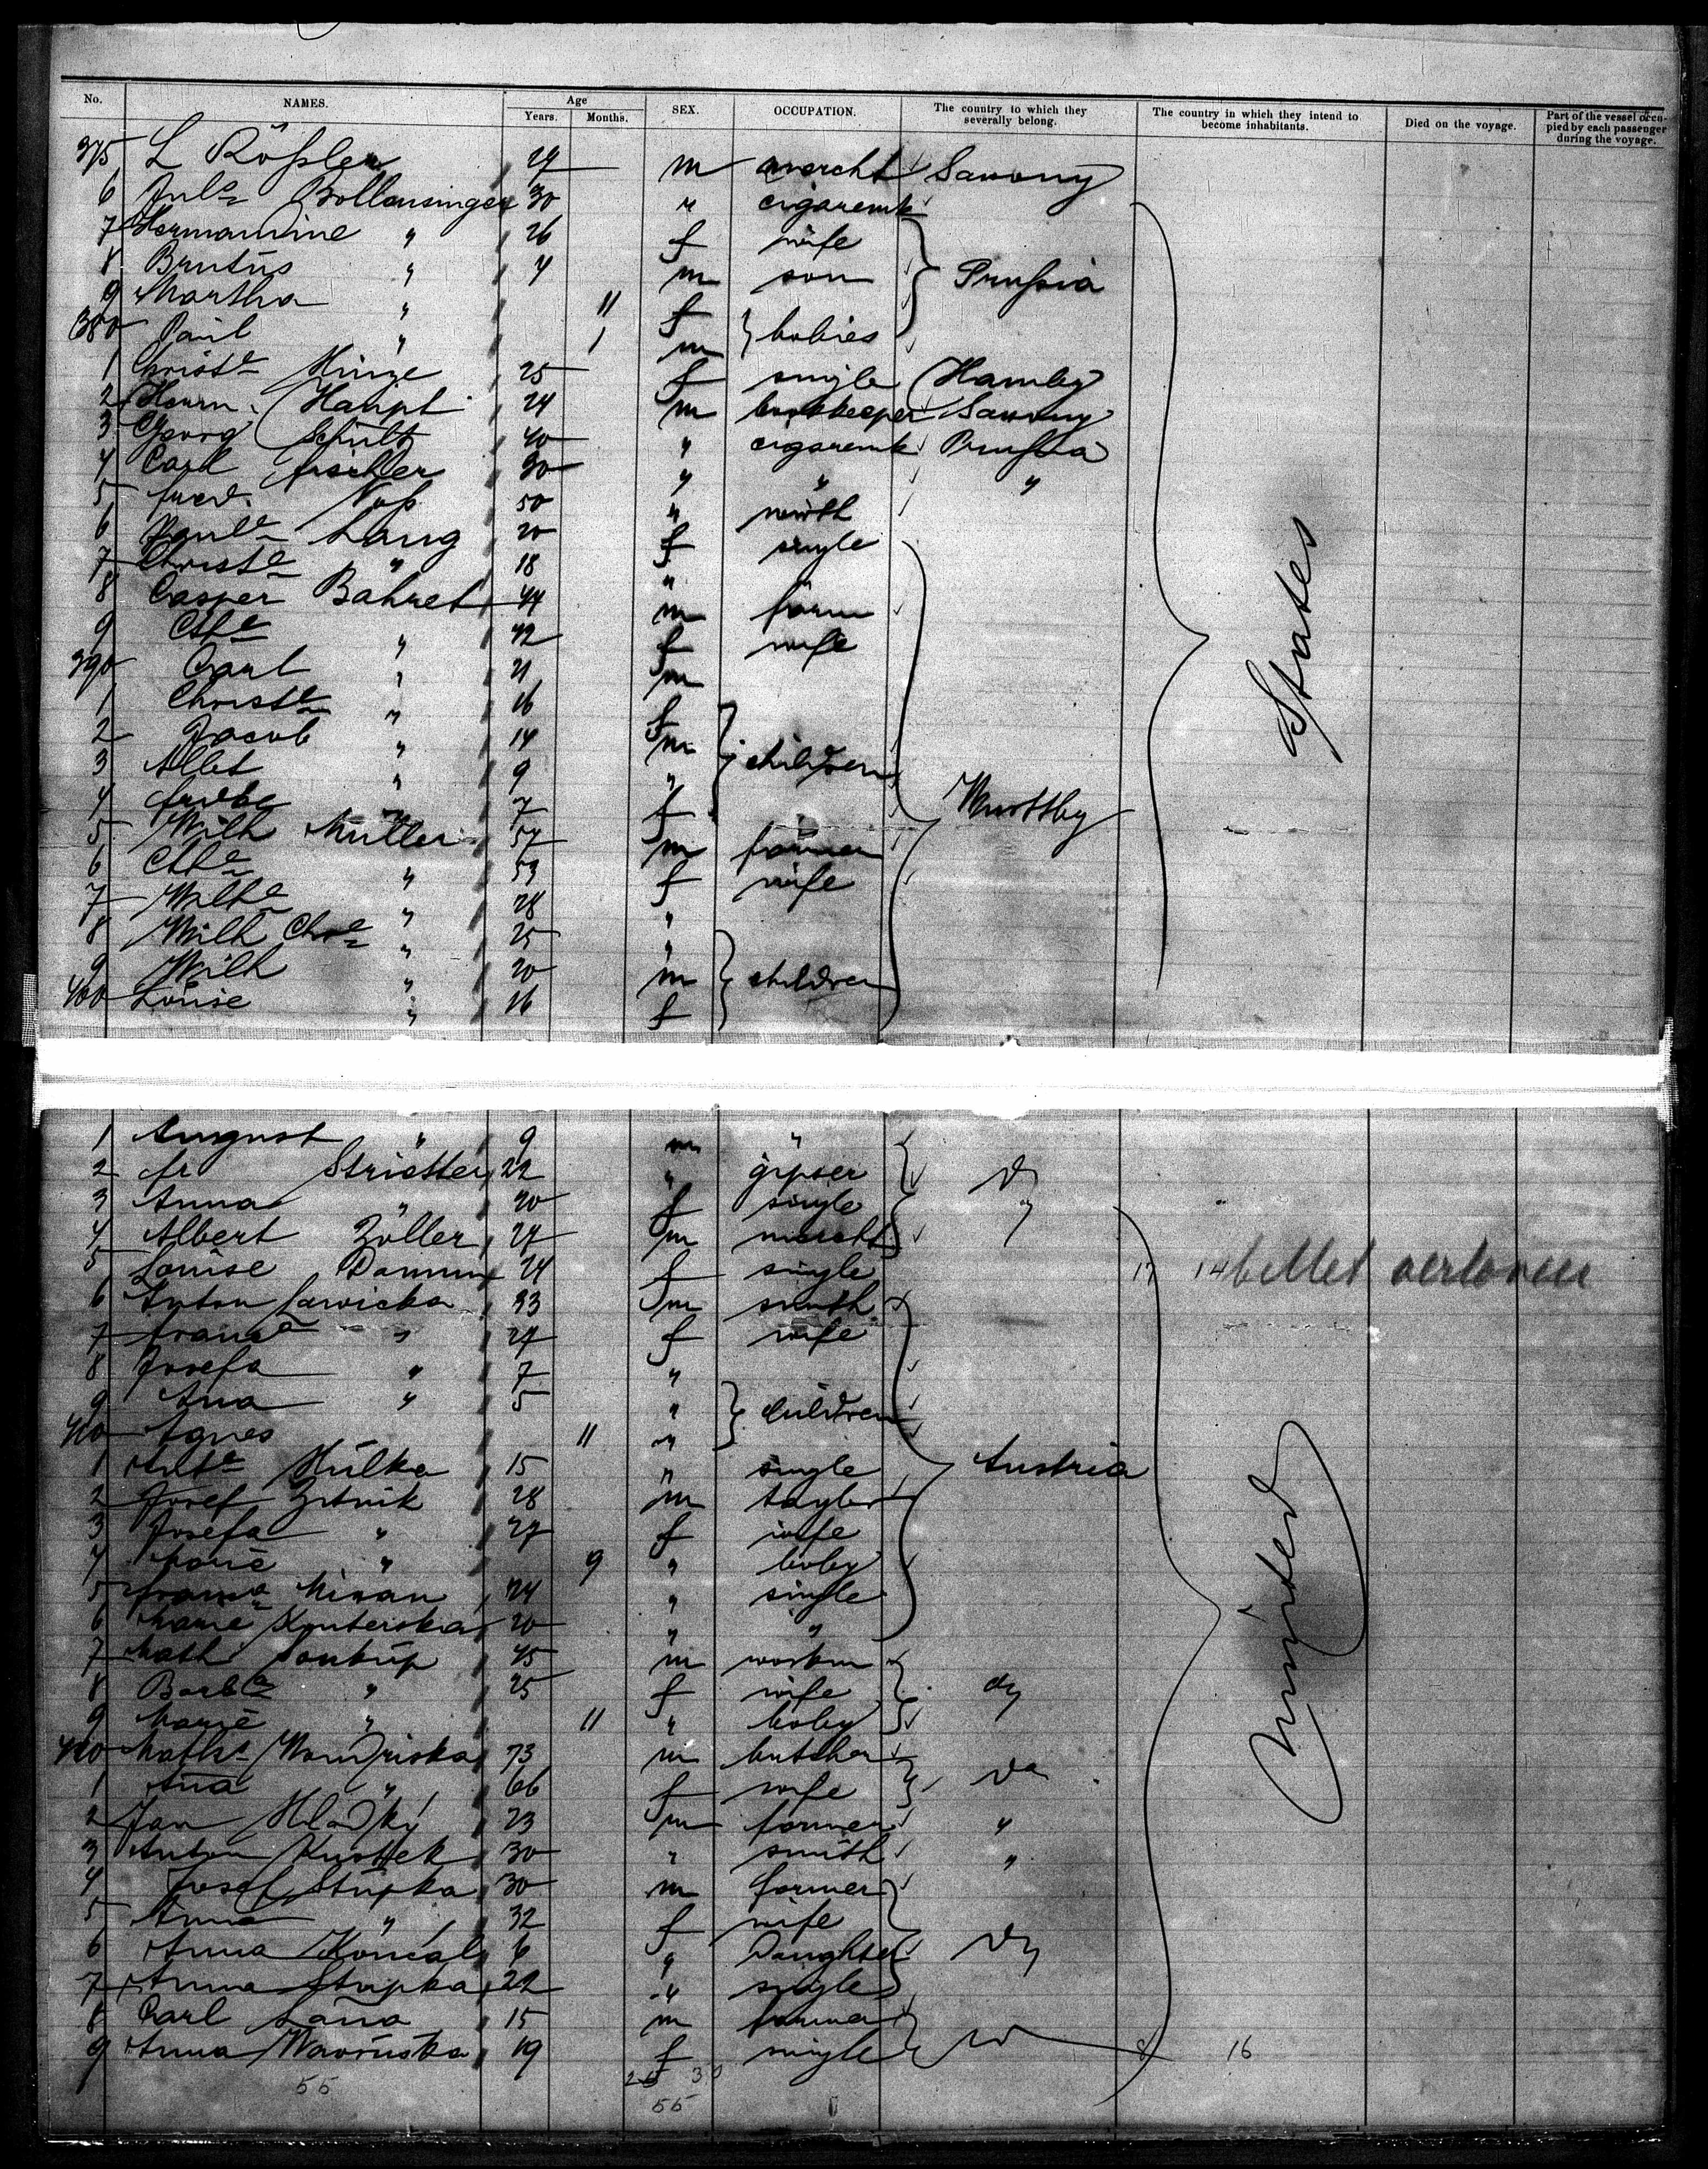 No. NAMES. Age Years. Months. SEX. OCCUPATION. The country to which they severally belong. The country in which they intend to become inhabitants. Died on the voyage. Part of the vessel occupied by each passenger during the voyage.
375 L Rößler 29 m mercht Saxony
6 Jul. Bollensinger 30 " cigaremk
7 Hermannine " 26 f wife
8 Brutus " 4 m son Prußia
9 Martha " 11 f
380 Paul " 1 m babies
1 Christe Hinze 25 f single Hambg
2 Herm. Haupt 24 m bookkeeper Saxony
3 Georg Schult 40 " cigaremk Prußia
4 Carl Fischler 30 " " "
5 Fried. Noß 50 "
6 Paule Lang 20 f single
7 Christe " 18 "
8 Casper Bahret 44 m farm
9 Cthe " 42 f wife
390 Carl " 21 m
1 Christe " 16 f
2 Jacob " 14 m children
3 Albt " 9 "
4 " 7 f Wurttbg
5 Wilh Müller 57 m farmer
6 Cthe " 53 f wife
7 Wilhe " 28 "
8 Wilh Chre " 25 "
9 Wilh " 20 m children
400 Louise " 16 f
States
1 August " 9 m "
2 Fr Strietter 22 " gipser
3 Anna " 20 f single "
4 Albert Zoller 27 m mercht
5 Louise Damm 24 f single 17 14 billet verloren
6 Anton 33 m smith
7 France " 27 f wife
8 Josefa " 7 "
9 Ana " 5 " children
410 Agnes 11 "
1 Hulka 15 " single Austria
2 Josef Zitnik 28 m taylor
3 Josefa " 27 f wife
4 Marie " 9 " baby
5 24 " single
6 Marie 20 " "
7 Math Soukup 45 m workm
8 Barb " 25 f wife do
9 Marie " 11 " baby
420 Wondriska 73 m butcher
1 Ana " 66 f wife do
2 Jan Hladky 23 m farmer "
3 Anton 30 " smith "
4 Josef Stupka 30 m farmer
5 Anna " 32 f wife
6 Anna Koncal 6 " Daughter do
7 Anna Stupka 22 " single
8 Carl 15 m farmer
9 Anna Wavruska 19 f single 8 16
United
55 25 30
55